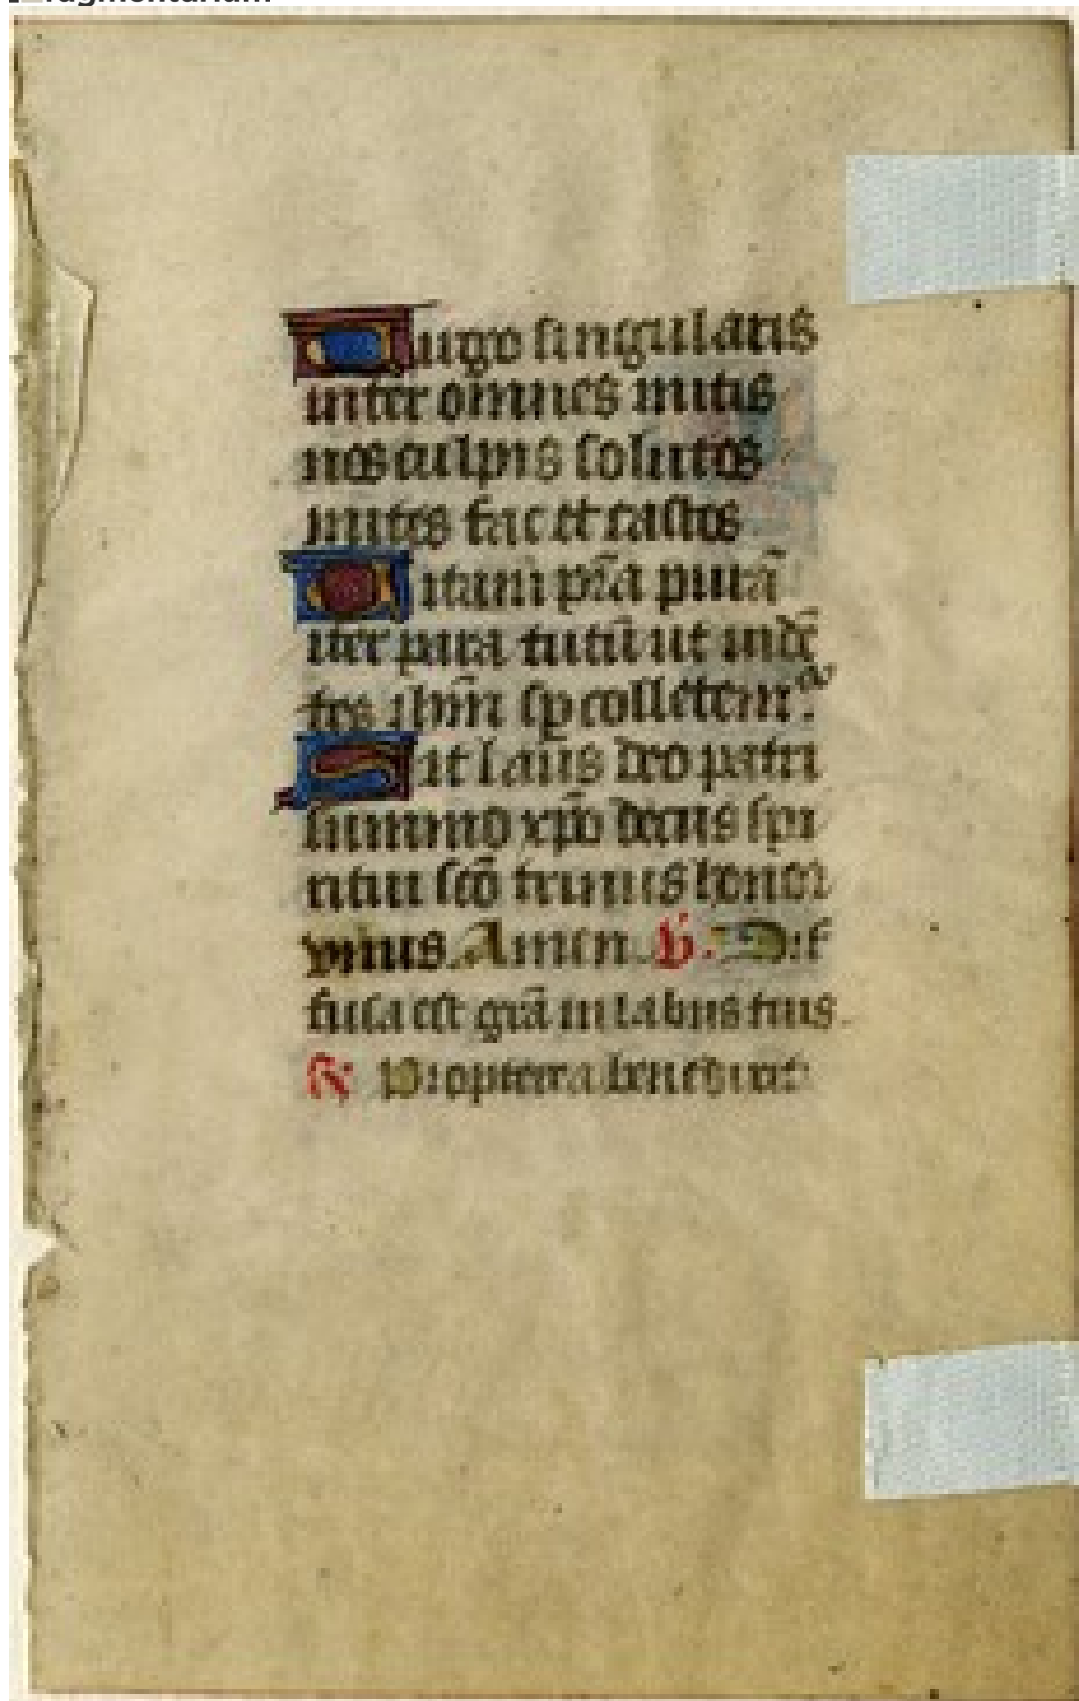 [Fragmentarium
Uirgo singularis
inter omnes mitis
nos culpis solutos
mites fac et castos
Uitam p̄sta purā
iter para tutū ut uidē
tes ihm̄ sp collētem᷑
Sit laus deo patri
summo xp̄o decus spi
ritui sc̄o trinus honor
vnus. Amen. V̓. Dif
fusa est gr̄a in labiis tuis.
R̓ Propterea benedixit